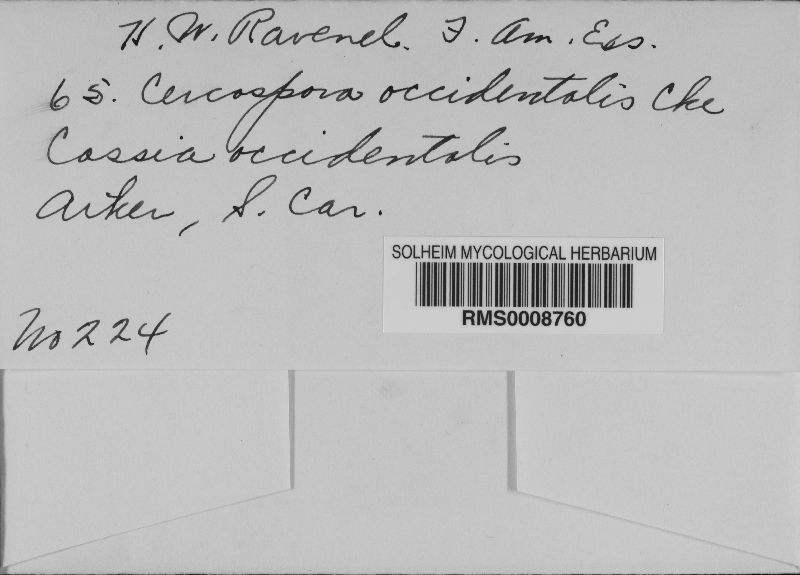 H. W. Ravenel. F. Am. Exs.
65. Cercospora occidentalis Cke
Cassia occidentalis
Aiken, S. Car.
SOLHEIM MYCOLOGICAL HERBARIUM
RMS0008760
No 224